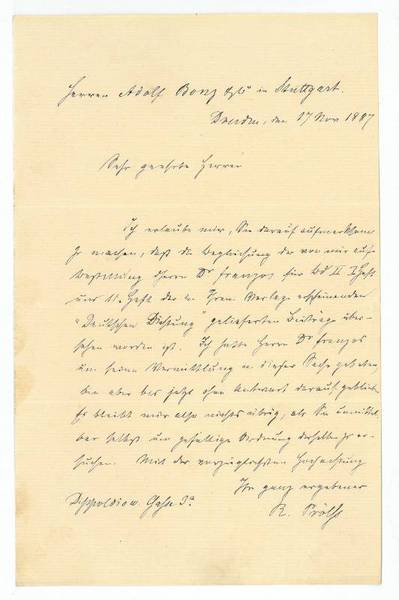 Herren Adolf Bonz & Co in Stuttgart.
Dresden, den 17 Nov 1887
Sehr geehrte Herren
Ich erlaube mir, Sie darauf aufmerksam
zu machen, daß die Begleichung der von mir auf
Bestellung Herrn Dr Franzos für Bd II 7. Heft
und 11. Heft der in Ihrem Verlage erscheinenden
"Deutschen Dichtung" gelieferten Beiträge über-
sehen worden ist. Ich hatte Herrn Dr Franzos
um seine Vermittlung in dieser Sache gebeten
bin aber bis jetzt ohne Antwort darauf geblieben
Es bleibt mir also nichts übrig, als Sie unmittel
bar selbst um gefällige Ordnung derselben zu er-
suchen. Mit der vorzüglichsten Hochachtung
Ihr ganz ergebener
R. Prölß
Dippoldisw. Gasse